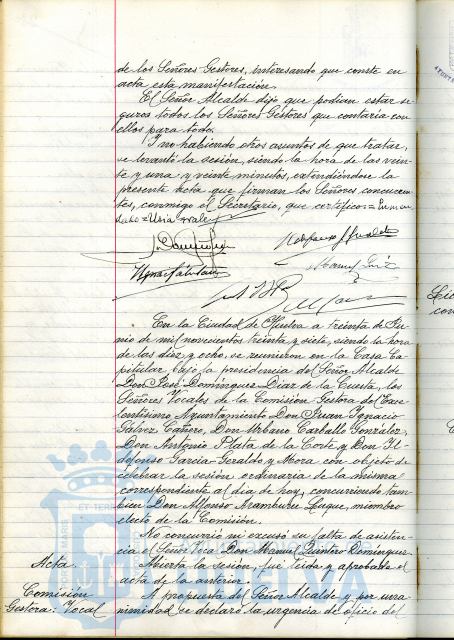 de los Señores Gestores, interesando que conste en
acta esta manifestación.
El Señor Alcalde dijo que podian estar se
guros todos los Señores Gestores que contaria con
ellos para todo.
Y no habiendo otros asuntos de que tratar,
se levantó la sesión, siendo la hora de las vein
te y una y veinte minutos, extendiéndose la
presente Acta que firman los Señores concurren
tes, conmigo el Secretario, que certifico=
=Una=vale=
En la Ciudad de Huelva a treinta de Ju
nio de mil novecientos treinta y siete, siendo la hora
de las diez y ocho, se reunieron en la Casa Ca
pitular bajo la presidencia del Señor Alcalde
Don José Domínguez Diaz de la Cuesta, los
Señores Vocales de la Comisión Gestora del Exce
lentísimo Ayuntamiento Don Juan Ignacio
Gálvez Cañero, Don Urbano Carballo González,
Don Antonio Plata de la Corte y Don Il
defonso Garcia-Geraldo y Mora con objeto de
celebrar la sesión ordinaria de la misma
correspondiente al dia de hoy, concurriendo tam
bien Don Alfonso Aramburu Luque, miembro
electo de la Comisión.
No concurrió ni excusó su falta de asisten
cia el Señor Vocal Don Manuel Quintero Dominguez
Acta. Abierta la sesión, fué leida y aprobada el
acta de la anterior.
Comisión A propuesta del Señor Alcalde y por una
Gestora: Vocal nimidad se declaró la urgencia de oficio del